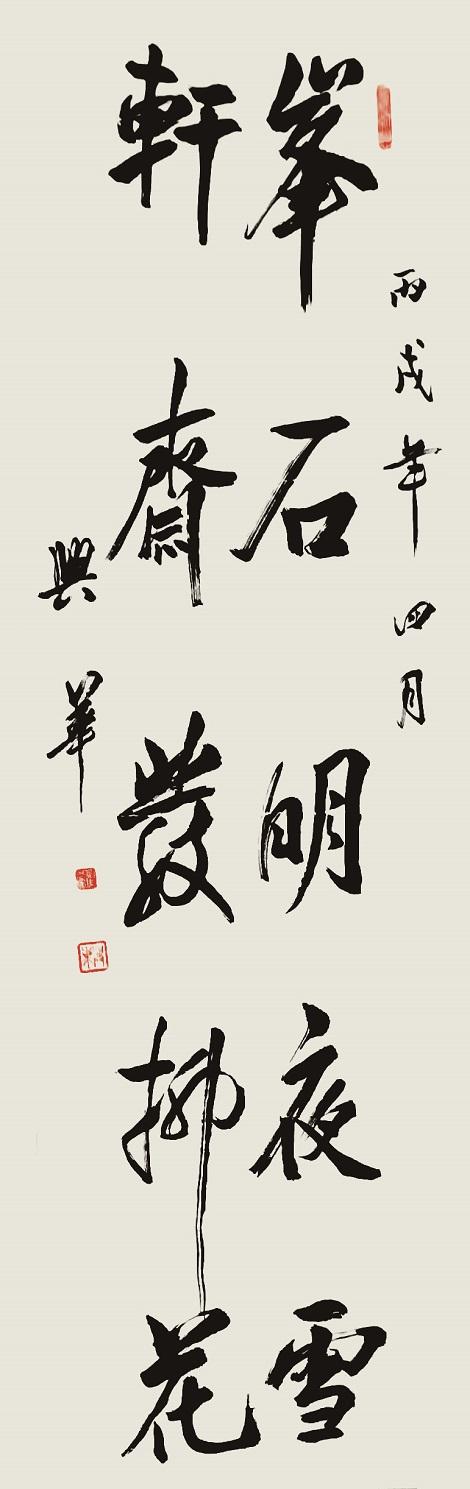 丙戌年四月
峯石明夜雪
軒齋發拂花
興華